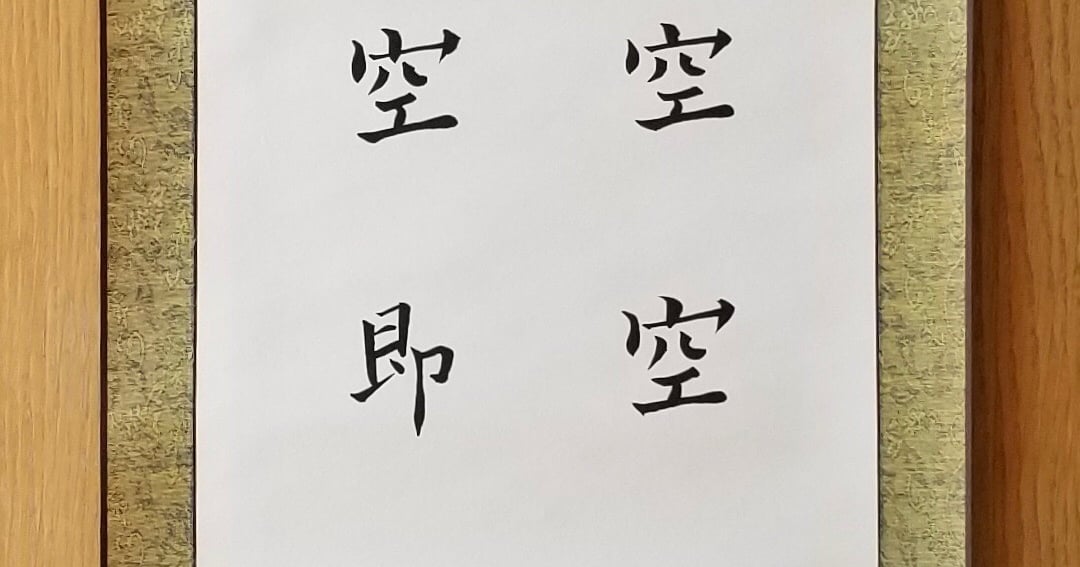 空空
空即